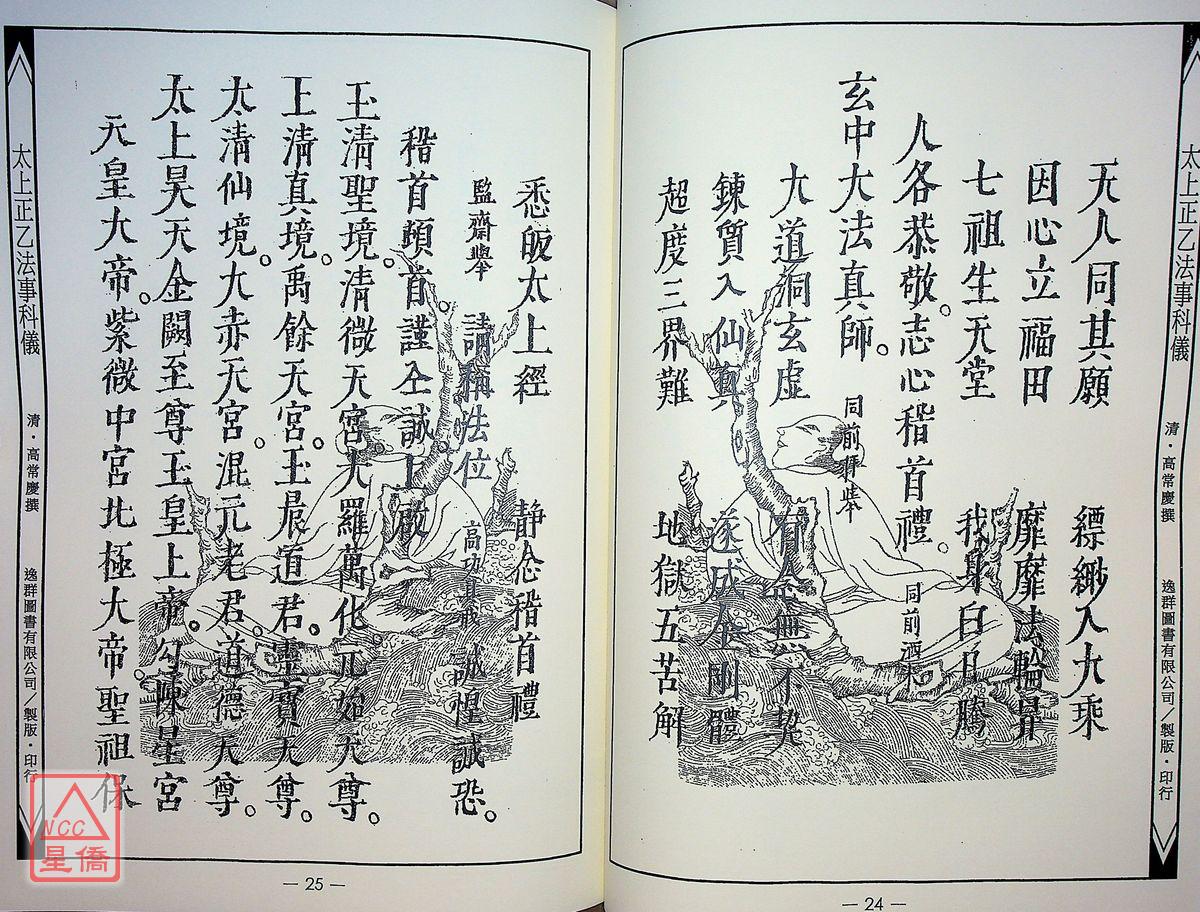 太上正乙法事科儀
清・高常慶撰
逸群圖書有限公司／製版・印行
天人同其願 縹緲入大乘
因心立福田 靡靡法輪昇
七祖生天堂 我身白日騰
人各恭敬。志心稽首禮。同前洒水
玄中大法真師。同前拜举
大道洞玄虛 有念無不契
鍊質入仙真 遂成金剛體
超度三界難 地獄五苦解
— 24 —
悉皈太上經 静念稽首禮
監齋舉 請稱法位 高功具戒 誠惶誠恐。
稽首頓首。謹仝誠。上啟
玉清聖境。清微天宮。大羅萬化。元始天尊。
上清真境。禹餘天宮。玉晨道君。靈寶天尊。
太清仙境。大赤天宮。混元老君。道德天尊。
太上昊天金闕至尊玉皇上帝。勾陳星宮
天皇大帝。紫微中宮北極大帝。聖祖保
太上正乙法事科儀
清・高常慶撰
逸群圖書有限公司／製版・印行
— 25 —
NCC
星僑